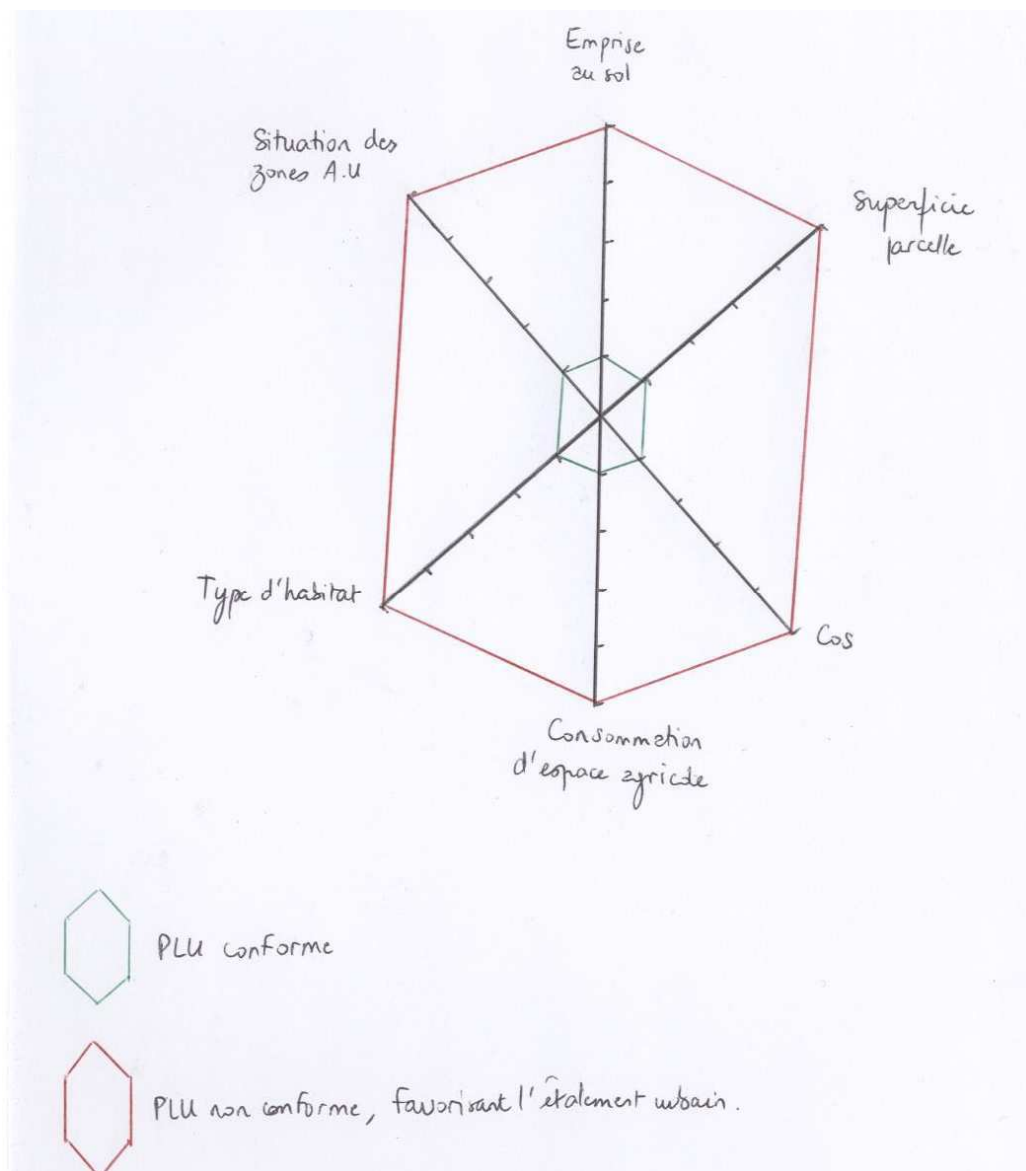 Emprise
au sol
Situation des
zones A.U
Superficie
parcelle
Type d'habitat
Cos
Consommation
d'espace agricole
PLU conforme
PLU non conforme, favorisant l'étalement urbain.